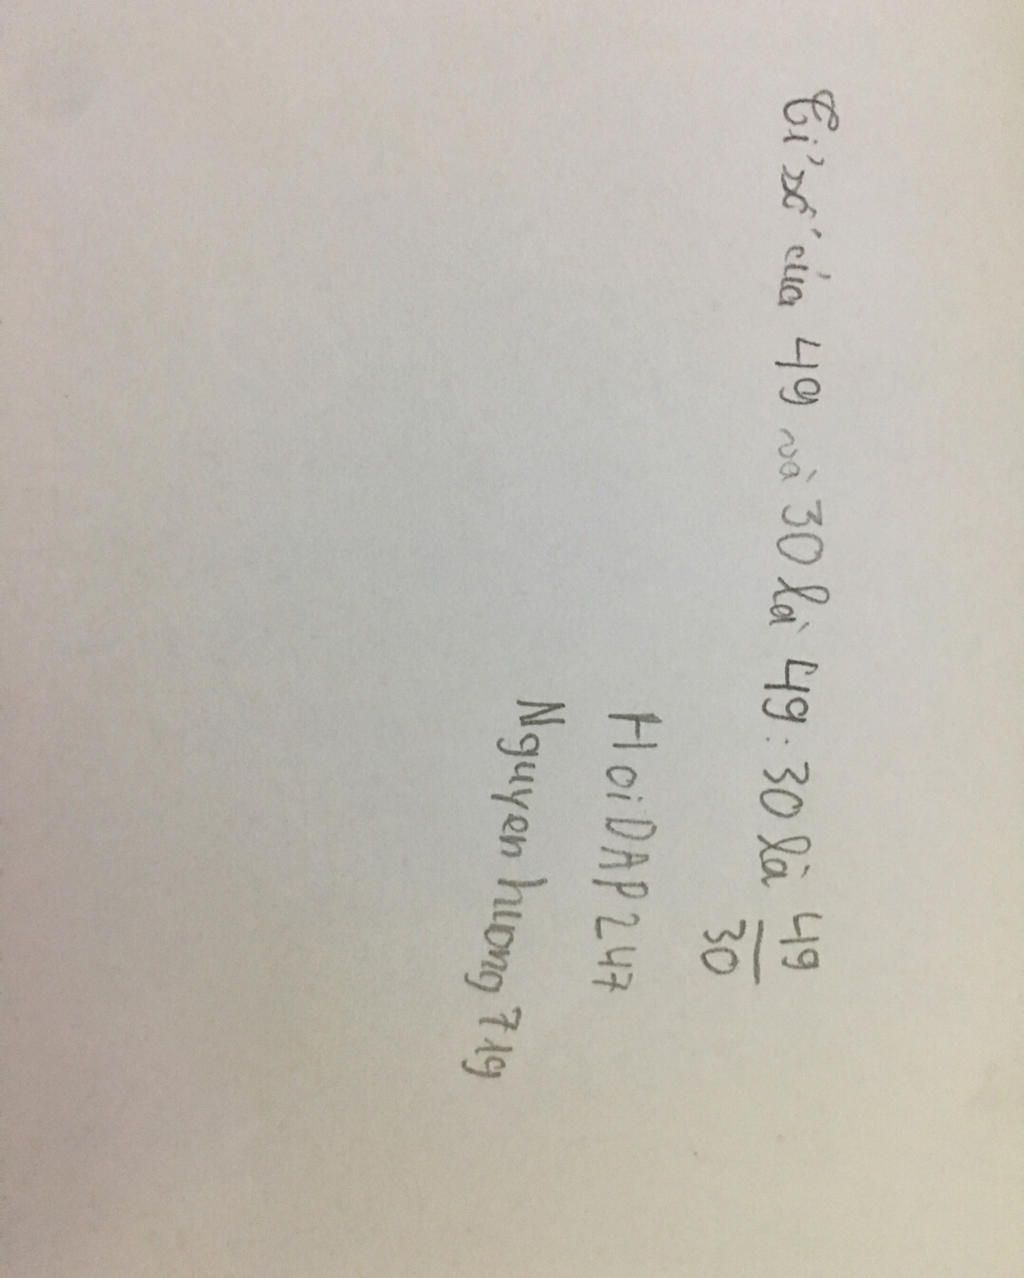 Tỉ số của 49 và 30 là 49 : 30 là 49/30
HoiDAP247
Nguyenhuong719